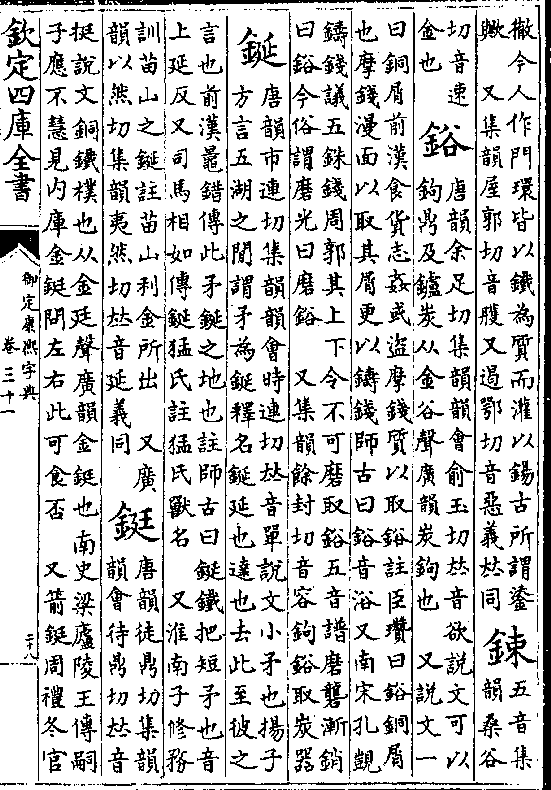 撤令人作門環皆以鐵為質而灌以錫古所謂鋈 鋉 五音集韻桑谷
切音速
金也 鋊 唐韻余足切集韻韻會俞玉切𠀤音欲說文可以
鉤鼎及鑪炭从金谷聲廣韻炭鉤也 又說文一
曰銅屑前漢食貨志姦或盜摩錢質以取鋊註臣瓚曰鋊銅屑
也摩錢漫面以取其屑更以鑄錢師古曰鋊音浴又南宋孔覬
鑄錢議五銖錢周郭其上下令不可磨取鋊五音譜磨礱漸銷
曰鋊今俗謂磨光曰磨鋊 又集韻餘封切音容鉤鋊取炭器
鋋 唐韻市連切集韻韻會時連切𠀤音單說文小矛也揚子
方言五湖之閒謂矛為鋋釋名鋋延也達也去此至彼之
言也前漢鼂錯傳此矛鋋之地也註師古曰鋋鐵把短矛也音
上延反又司馬相如傳鋋猛氏註猛氏獸名 又淮南子修務
訓苗山之鋋註苗山利金所出 又廣
韻以然切集韻夷然切𠀤音延義同 鋌 唐韻徒鼎切集韻
韻會待鼎切𠀤音
挺說文銅鐵樸也从金廷聲廣韻金鋌也南史梁廬陵王傳嗣
子應不慧見內庫金鋌問左右此可食否 又箭鋌周禮冬官
欽定四庫全書
御定康熙字典
卷三十一
二十八